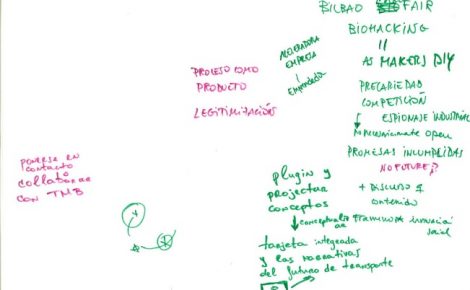 BILBAO FAIR
BIOHACKING
=
AS MAKERS DIY
ACELERADORA
EMPRESA
PROCESO COMO
PRODUCTO
LEGITIMIZACIÓN
PRECARIEDAD
COMPETICIÓN
ESPIONAJE INDUSTRIAL
open
PROMESAS INCUMPLIDAS
NO FUTURE?
+ DISCURSO Y
contenido
PONERSE EN
CONTACTO
COLLABORAR
CON TMB
plugin y
projectar
conceptos
conceptualizar
innovació
social
tarjeta integrada
y las narrativas
del futuro de transporte